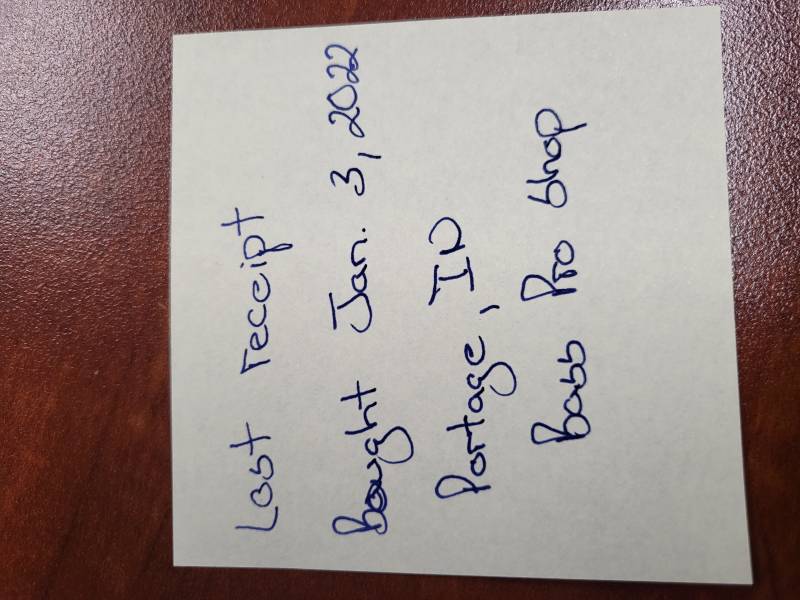 Lost receipt
Bought Jan. 3, 2022
Portage, IN
Bass Pro Shop